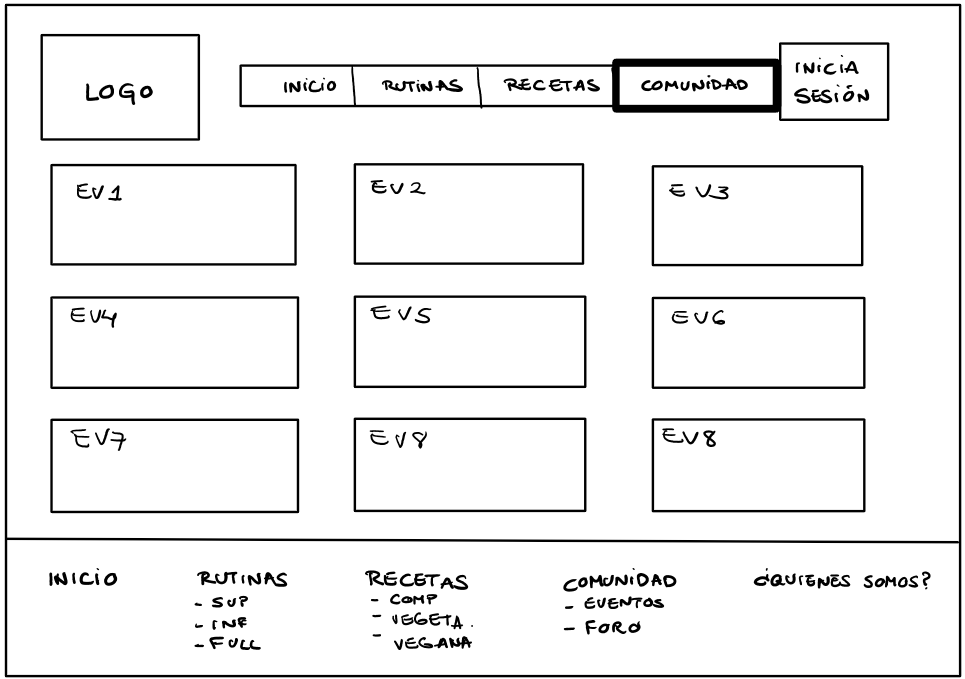 LOGO
INICIO
RUTINAS
RECETAS
COMUNIDAD
INICIA
SESIÓN
EV1
EV2
EV3
EV4
EV5
EV6
EV7
EV8
EV8
INICIO
RUTINAS
- SUP
- INF
- FULL
RECETAS
- COMP
- VEGETA.
- VEGANA
COMUNIDAD
- EVENTOS
- FORO
¿QUIENES SOMOS?